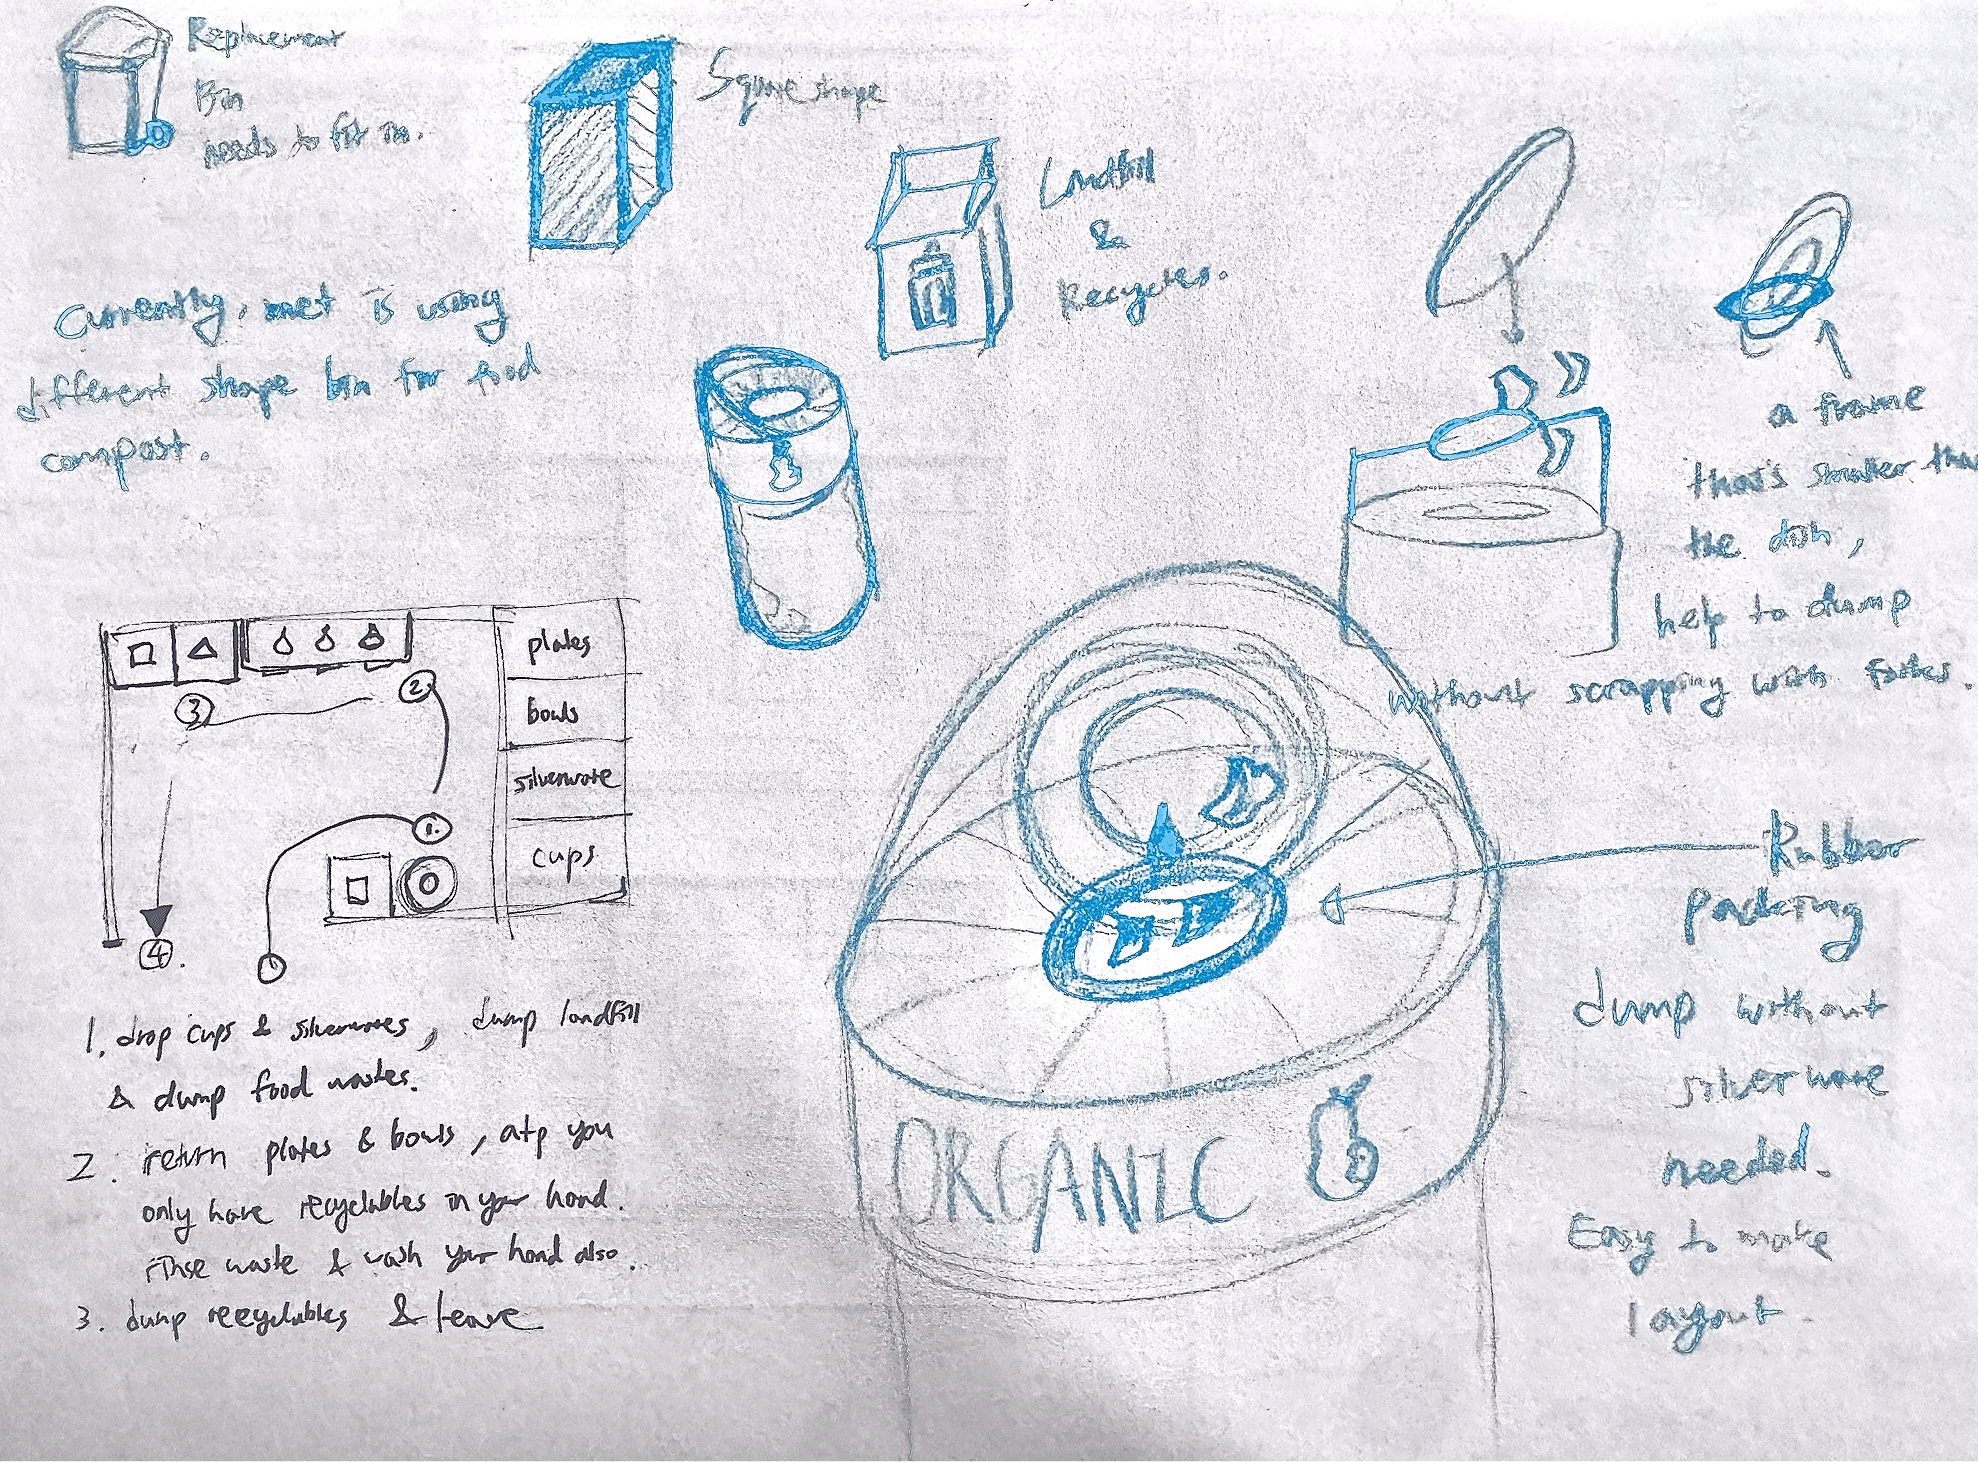 Replacement
Bin
needs to fit in.
Square shape
Landfill
&
Recycles.
Currently, met is using
different shape bin for food
compost.
a frame
that's smaller than
the dish,
help to dump
without scrapping with forks.
plates
bowls
silverware
cups
3
2
1.
4.
1. drop cups & silverwares, dump landfill
& dump food wastes.
2. return plates & bowls, atp you
only have recyclables in your hand.
rinse waste & wash your hand also.
3. dump recyclables & leave
ORGANIC
Rubber
packing
dump without
silverware
needed.
Easy to make
layout.